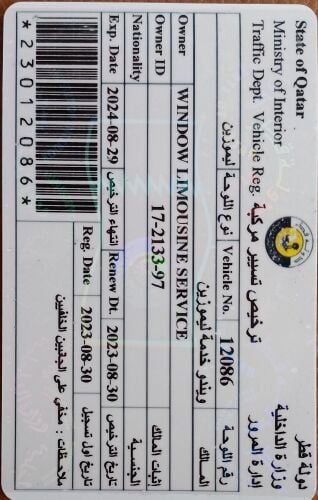 State of Qatar
دولة قطر
Ministry of Interior
وزارة الداخلية
Traffic Dept. Vehicle Reg.
ترخيص تسيير مركبة
إدارة المرور
ليموزين
نوع اللوحة
Vehicle No.
12086
رقم اللوحة
ويندو خدمة ليموزين
المالك
Owner
WINDOW LIMOUSINE SERVICE
Owner ID
17-2133-97
إثبات المالك
Nationality
الجنسية
Exp. Date
2024-08-29
انتهاء الترخيص
Renew Dt.
2023-08-30
تاريخ الترخيص
Reg. Date
2023-08-30
تاريخ اول تسجيل
ملاحظات : مخفي على الجانبين الخلفيين
*23012086*